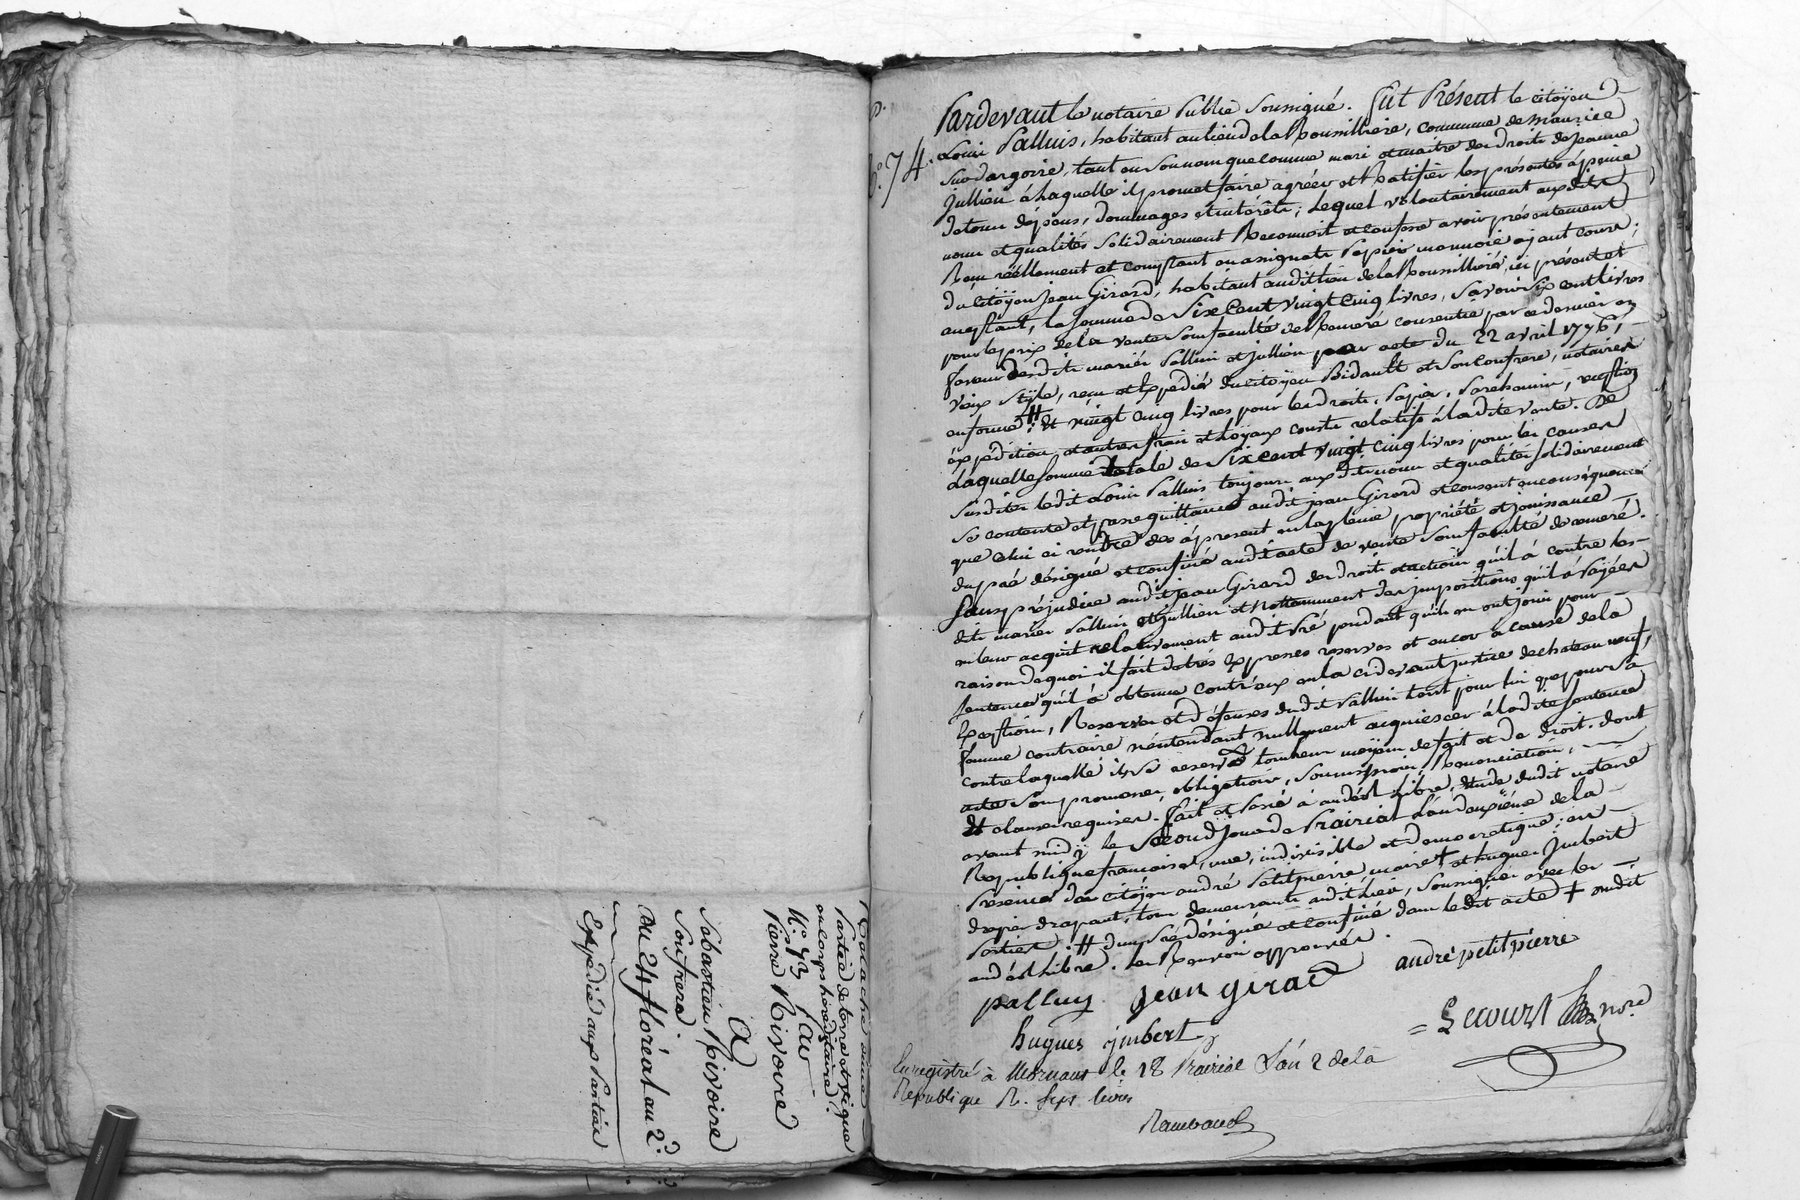 Partie de terre et vigne
au corps héréditaire.
N.º 73 par
Pierre Rivoire
à
Sébastien Rivoire
Son frere.
Du 24 floréal an 2.d
Expédié aux Parties
N.º 74.
Pardevant le notaire Public soussigné. fut Présent le citöyen
Louis Palluis, habitant au lieu de la Roussilliere, commune de maurice
sur dargoire, tant en son nom que comme mari et maitre des droits de jeanne
jullien à laquelle il promet faire agréer et Ratifier les présentes à peine
de tous dépens, dommages et intérêts; Lequel volontairement auxdits
noms et qualités solidairement Reconnoit et confesse avoir présentement
Reçu réellement et comptant en assignats Papier monnoie ajant cours;
du citöyen jean Girard, habitant audit lieu de la Roussilliere, ici présent et
acceptant, la somme de Six Cent vingt Cinq livres, savoir six cent livres
pour le prix de la vente sous faculté de Remeré consentie par ce dernier en
faveur desdits mariés Palluis et jullien par acte du 22 avril 1776,
vieux style, reçu et expédié du citöyen Bidault et son confrere, notaires
en forme; # Et vingt cinq livres pour les droits, Papier, Parchemin, reception
expédition, et autres frais et loÿaux couts relatifs à ladite vente. De
Laquelle somme totale de Six cent vingt Cinq livres pour les causes
susdites ledit Louis Palluis toujours auxdits noms et qualités solidairement
se contente et passe quittance audit jean Girard et consent en conséquence
que celui ci rentre des à present en la pleine propriété et jouissance
du pré désigné et confiné audit acte de vente sous faculté de remeré.
Sans préjudice audit jean Girard des droits et actions qu'il à contre les-
dits mariés Palluis et jullien et nottamment des impositions qu'il à Payées
en leur acquit relativement audit Pré pendant qu'ils en ont joui pour
raison de quoi il fait de très expresses reserves et encor à cause de la
sentence qu'il à obtenue contr'eux en la cidevant justice de chateau neuf,
Exeptions, Reserves et défenses dudit Palluis tant pour lui que pour sa
femme contraire n'entendant nullement acquiescer à ladite sentence
contre laquelle ils se reservent tous leurs moyens de fait et de droit. dont
acte sous promesses, obligations, soumissions, Renonciations,
Et clauses requises. fait et Passé à andéol libre, Etude dudit notaire
avant midÿ le Second jour de Prairial L'an deuxième de la
République française, une, indivisible et democratique; en
Présence des citöyens andré Petitpierre maire + et hugues jmbert
drapier drapant, tous demeurants audit lieu, soussignés avec les
Parties. # dun Pré désigné et confiné dans ledit acte + audit
andéol libre. les Renvois approuvés.
palluy jean girard andré petitpierre
hugues jmbert = Lecourt nore
Enregistré à Mornant le 18 Prairial L'an 2 de la
République R. sept livres
Rambaud